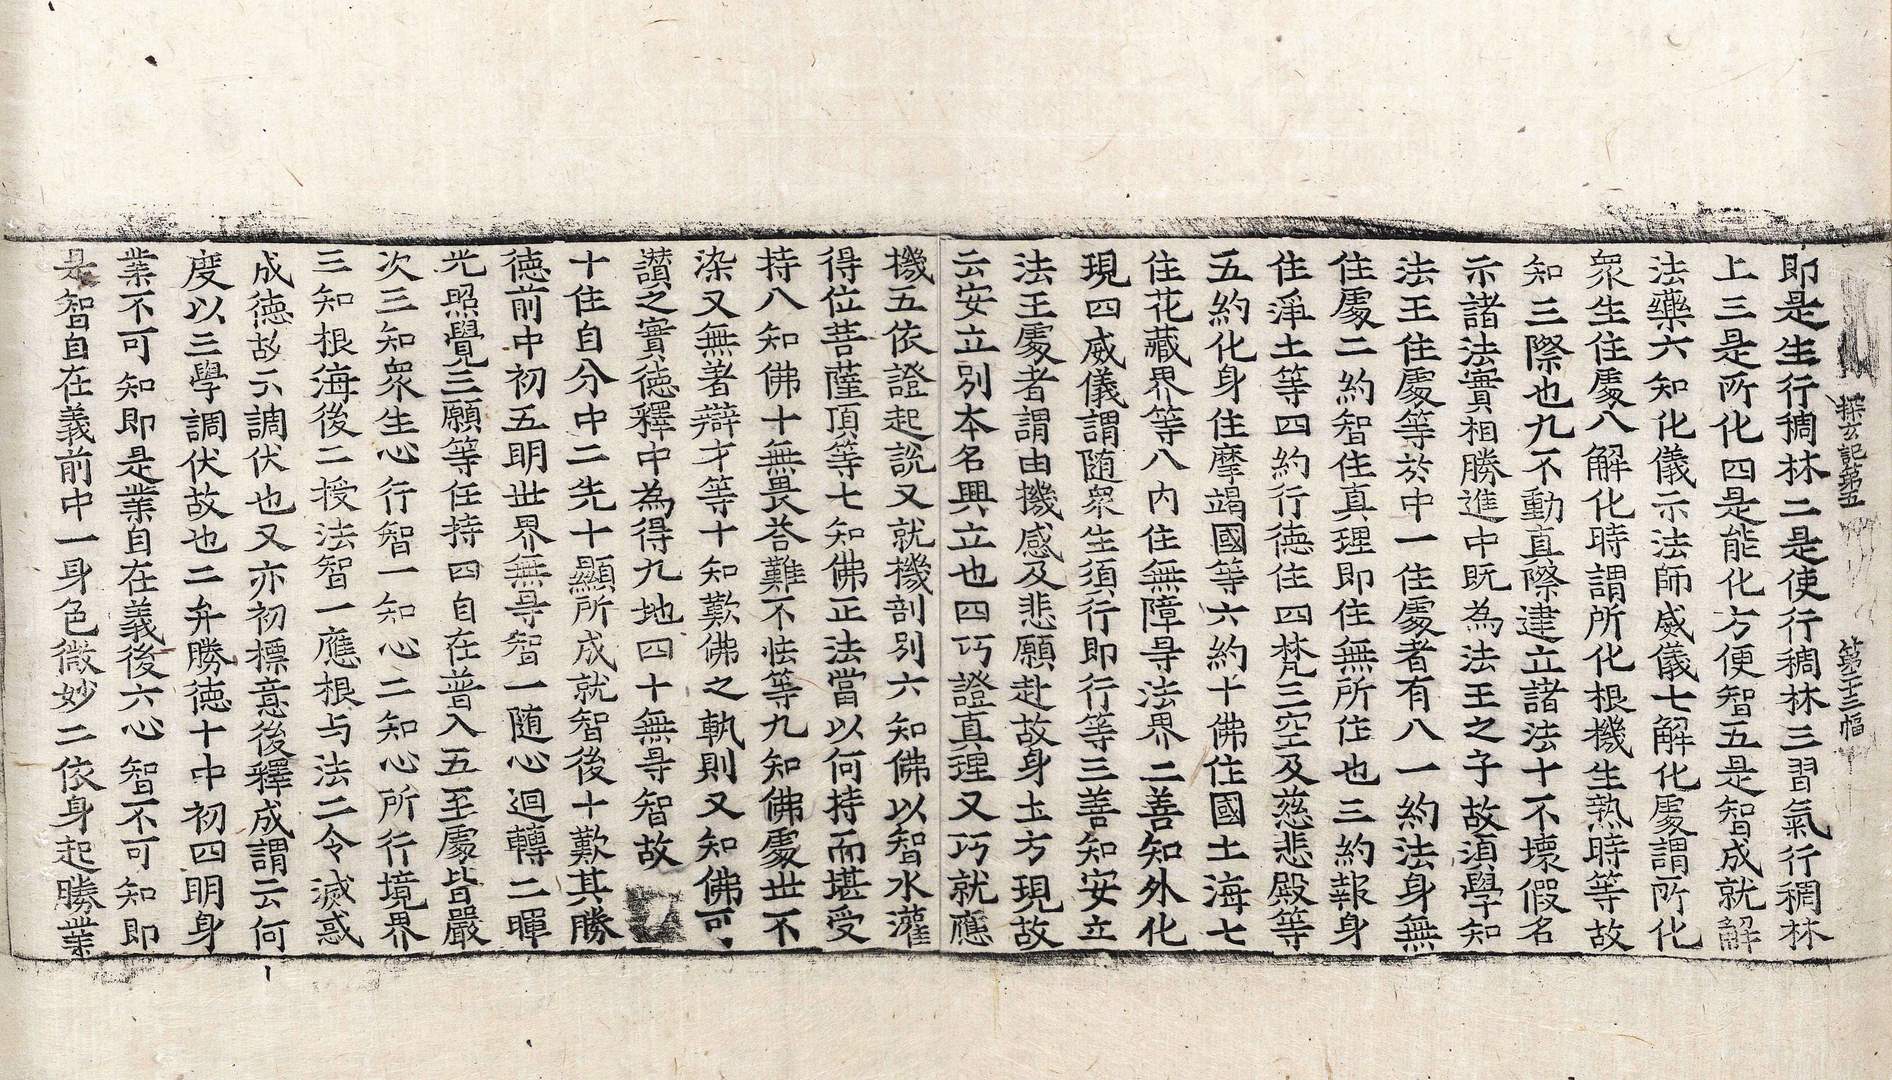 探玄記第五　第二十三幅
即是生行稠林二是使行稠林三習氣行稠林
上三是所化四是能化方便智五是智成就解
法藥六知化儀示法師威儀七解化處謂所化
衆生住處八解化時謂所化根機生熟時等故
知三際也九不動真際建立諸法十不壞假名
示諸法實相勝進中既為法王之子故須學知
法王住處等於中一住處者有八一約法身無
住處二約智住真理即住無所住也三約報身
住淨土等四約行德住四梵三空及慈悲殿等
五約化身住摩竭國等六約十佛住國土海七
住花藏界等八內住無障㝵法界二善知外化
現四威儀謂随衆生須行即行等三善知安立
法王處者謂由機感及悲願赴故身圡方現故
云安立別本名興立也四巧證真理又巧就應
機五依證起說又就機剖別六知佛以智水灌
得位菩薩頂等七知佛正法當以何持而堪受
持八知佛十無畏荅難不怯等九知佛處世不
染又無著辯才等十知歎佛之軌則又知佛可
讃之實德釋中為得九地四十無㝵智故
十住自分中二先十顯所成就智後十歎其勝
德前中初五明世界無㝵智一随心迴轉二暉
光照覺三願等任持四自在普入五至處皆嚴
次三知衆生心行智一知心二知心所行境界
三知根海後二授法智一應根与法二令滅惑
成德故云調伏也又亦初標意後釋成謂云何
度以三學調伏故也二弁勝德十中初四明身
業不可知即是業自在義後六心智不可知即
是智自在義前中一身色微妙二依身起勝業